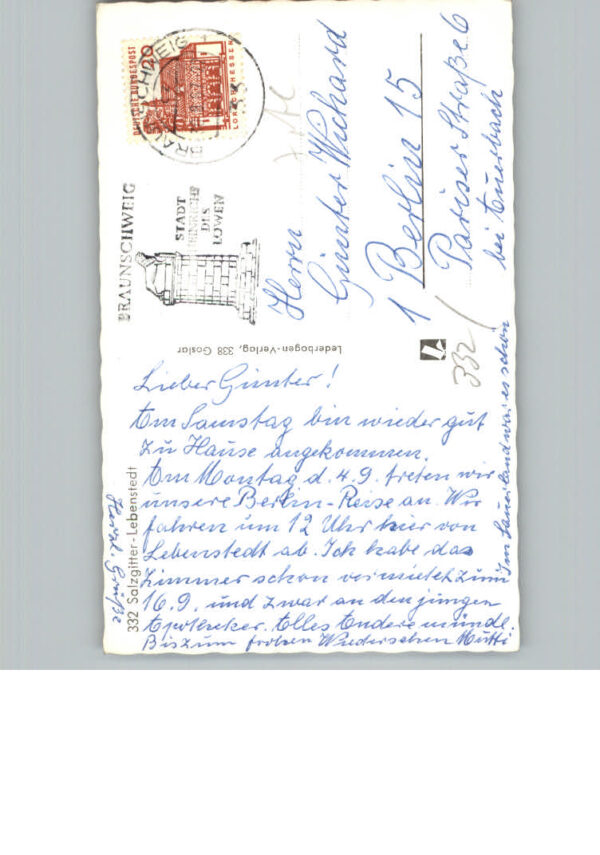 332 Salzgitter-Lebenstedt
Lieber Günter!
Am Samstag bin wieder gut
zu Hause angekommen.
Am Montag d. 4.9. treten wir
unsere Berlin-Reise an. Wir
fahren um 12 Uhr hier von
Lebenstedt ab. Ich habe das
Zimmer schon vermietet zum
16.9. und zwar an den jungen
Apotheker. Alles Andere mündl.
Bis zum frohen Wiedersehen Mutti
Herzl. Grüße
Im Sauerland war es schön
Lederbogen-Verlag, 338 Goslar
BRAUNSCHWEIG
STADT
HEINRICHS
DES
LÖWEN
BRAUNSCHWEIG
DEUTSCHE BUNDESPOST
20
LORSCH/HESSEN
Herrn
Günter Wichard
1 Berlin 15
Pariser Straße 6
bei Auerbach
332